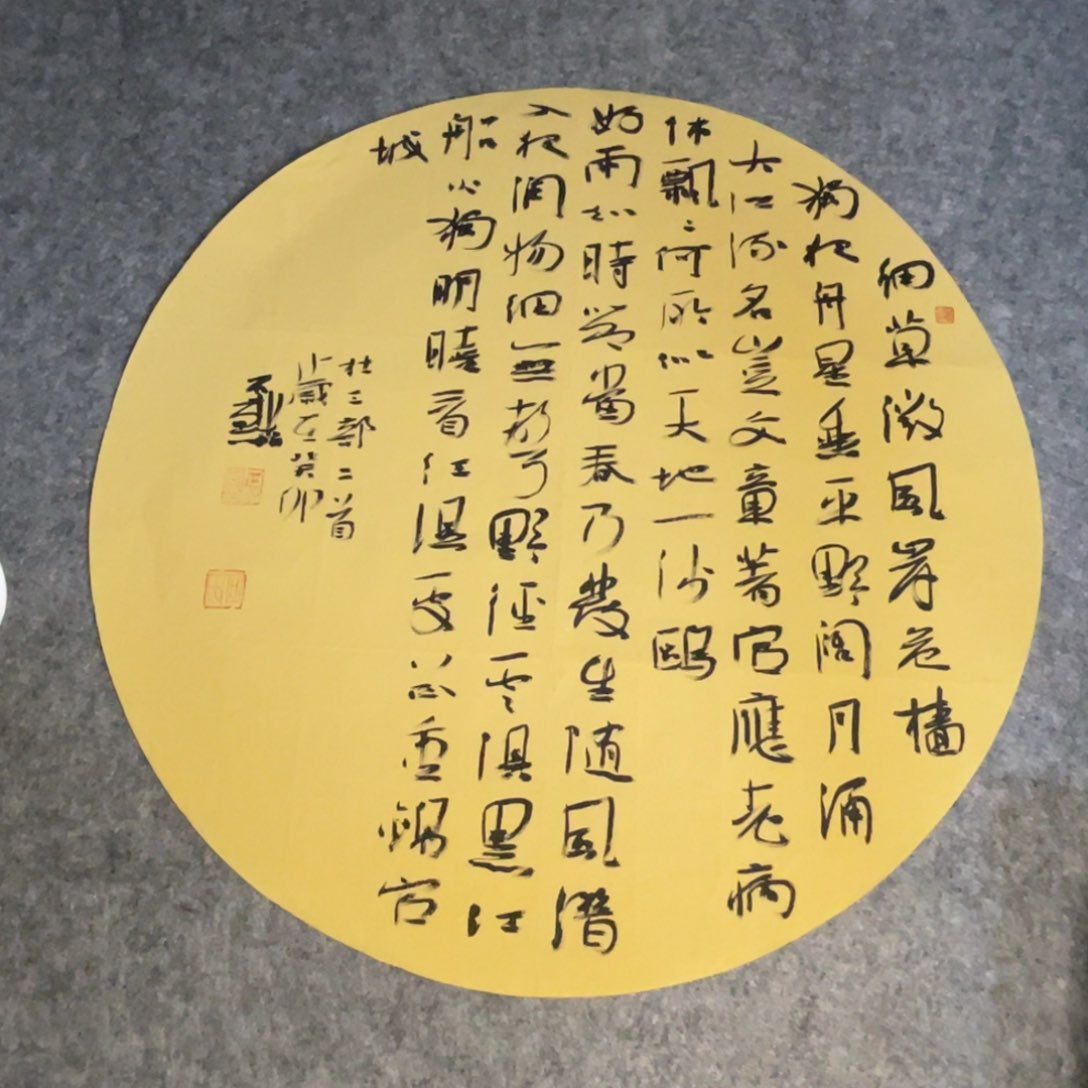 細草微風岸危檣
獨夜舟星垂平野闊月涌
大江流名豈文章著官應老病
休飄〻何所似天地一沙鷗
好雨知時節當春乃發生隨風潛
入夜潤物細無聲野徑雲俱黑江
船火獨明曉看紅濕處花重錦官
城
杜工部二首
歲在癸卯